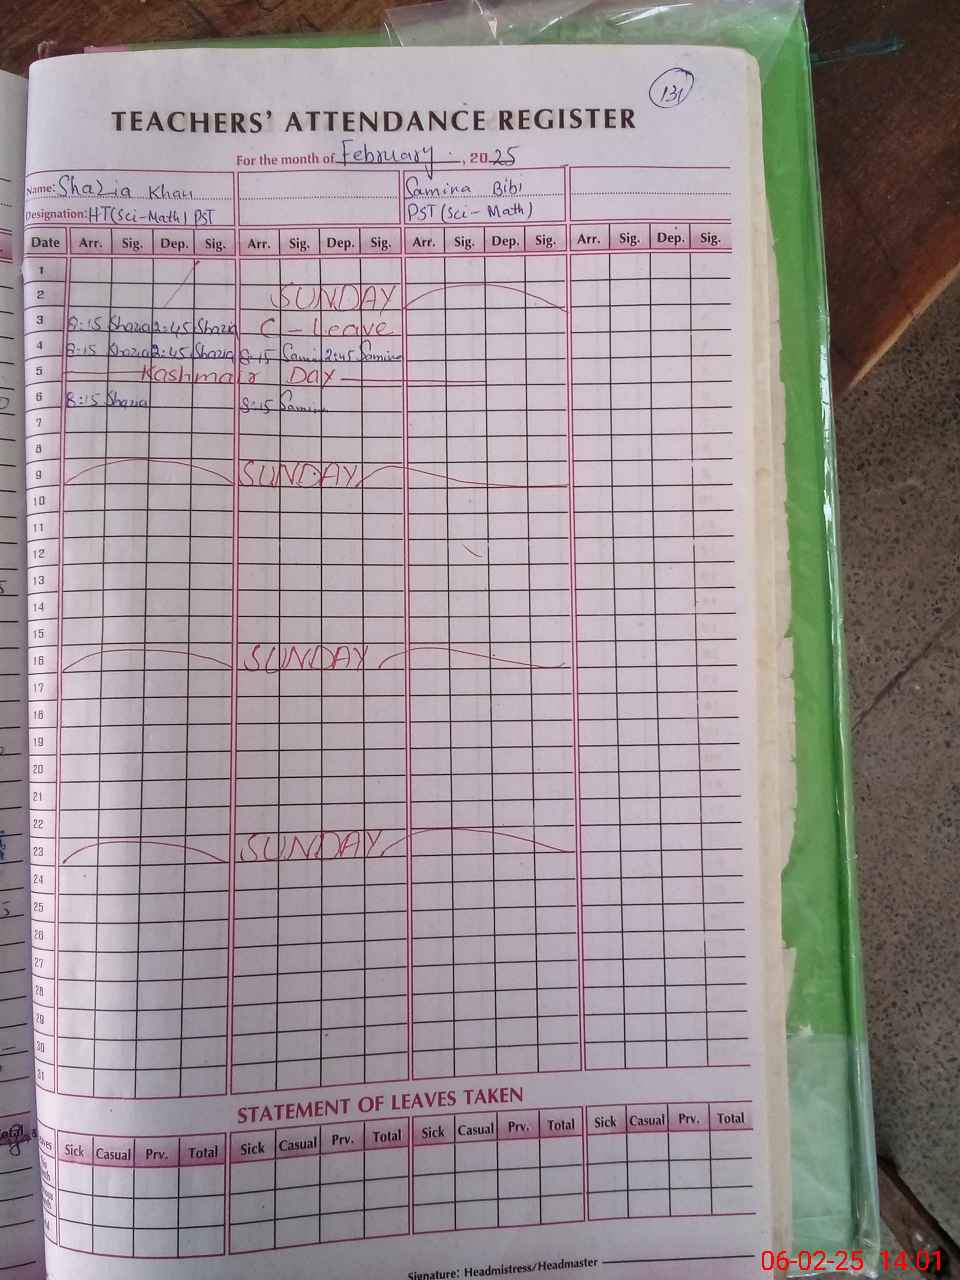 131
TEACHERS' ATTENDANCE REGISTER
For the month of February, 2025
Name: Shazia Khan Samina Bibi
Designation: HT (Sci-Math) PST PST (Sci-Math)
Date Arr. Sig. Dep. Sig. Arr. Sig. Dep. Sig. Arr. Sig. Dep. Sig. Arr. Sig. Dep. Sig.
1
2 SUNDAY
3 8:15 Shazia 2:45 Shazia C-Leave
4 8:15 Shazia 2:45 Shazia 8:15 Sami 2:45 Samina
5 Kashmair Day
6 8:15 Shazia 8:15 Samina
7
8
9 SUNDAY
10
11
12
13
14
15
16 SUNDAY
17
18
19
20
21
22
23 SUNDAY
24
25
26
27
28
29
30
31
STATEMENT OF LEAVES TAKEN
Sick Casual Prv. Total Sick Casual Prv. Total Sick Casual Prv. Total Sick Casual Prv. Total
Signature: Headmistress/Headmaster
06-02-25 14:01